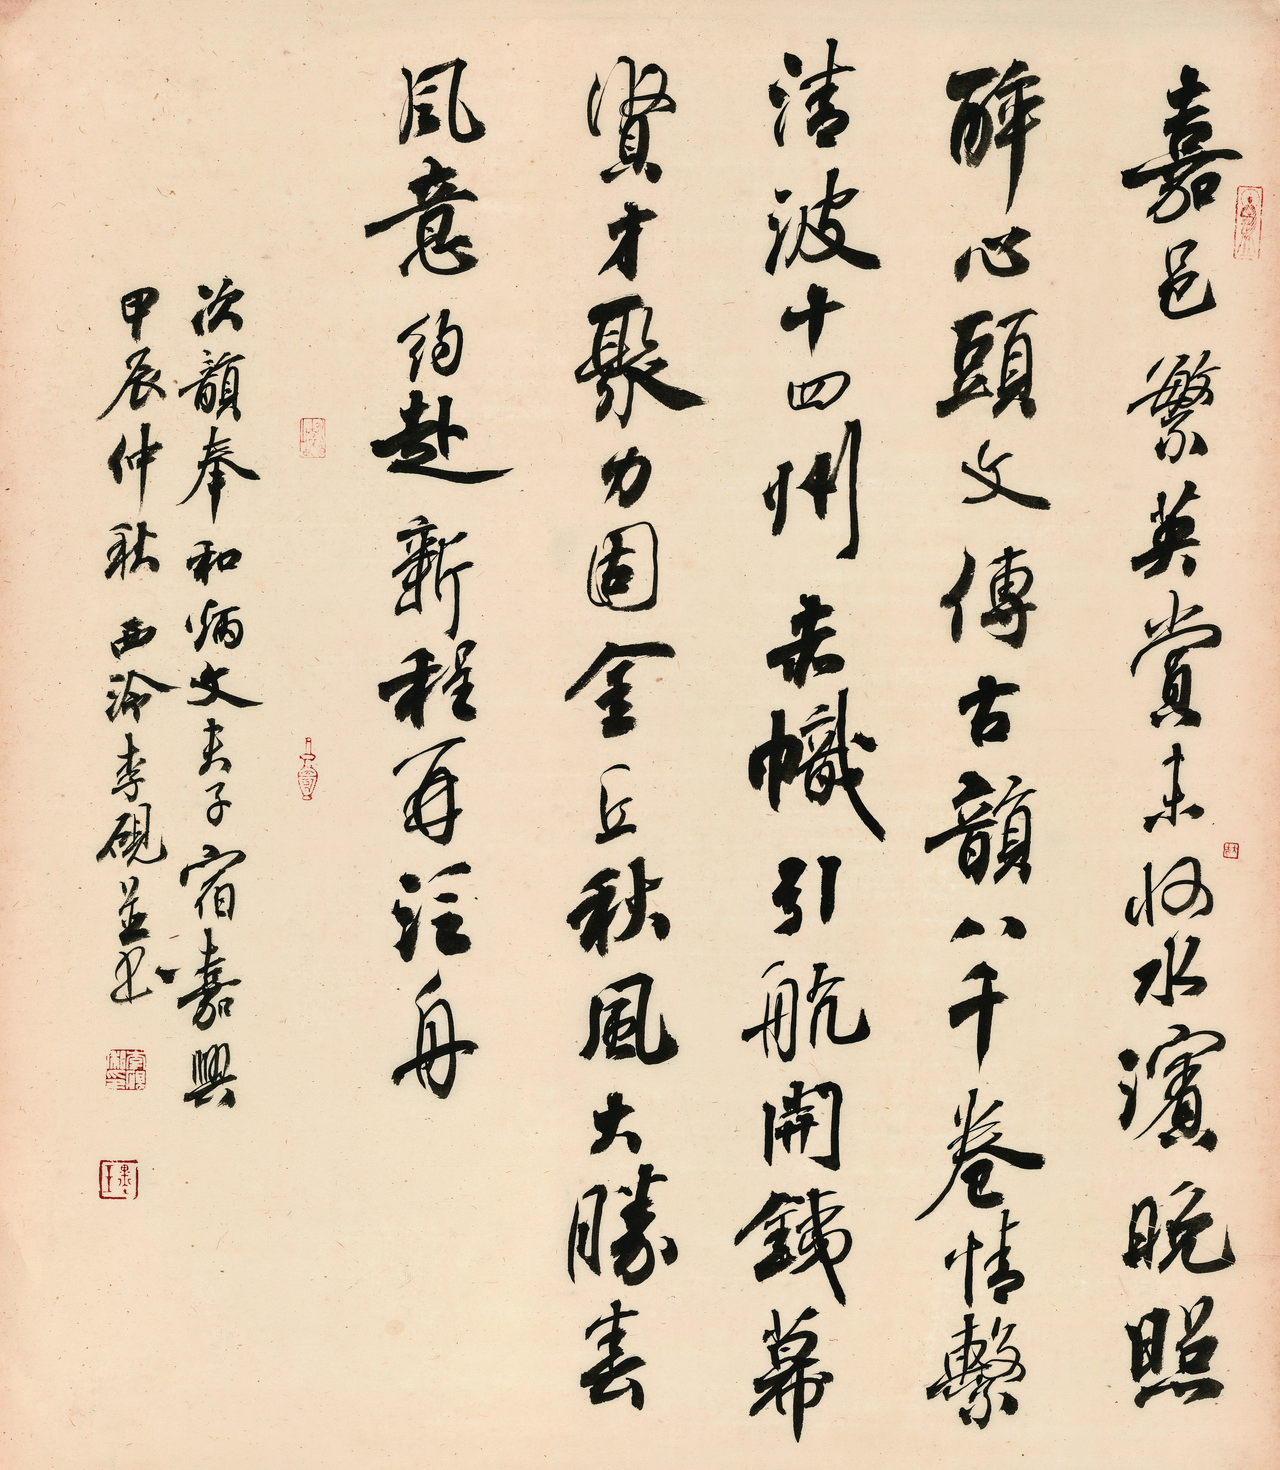 嘉邑繁英賞未收水濱晚照
醉心頭文傳古韻八千卷情繫
清波十四州赤幟引航開鐵幕
賢才聚力固金丘秋風大勝春
風意約赴新程再泛舟
次韻奉和炳文夫子宿嘉興
甲辰仲秋西泠李硯並書